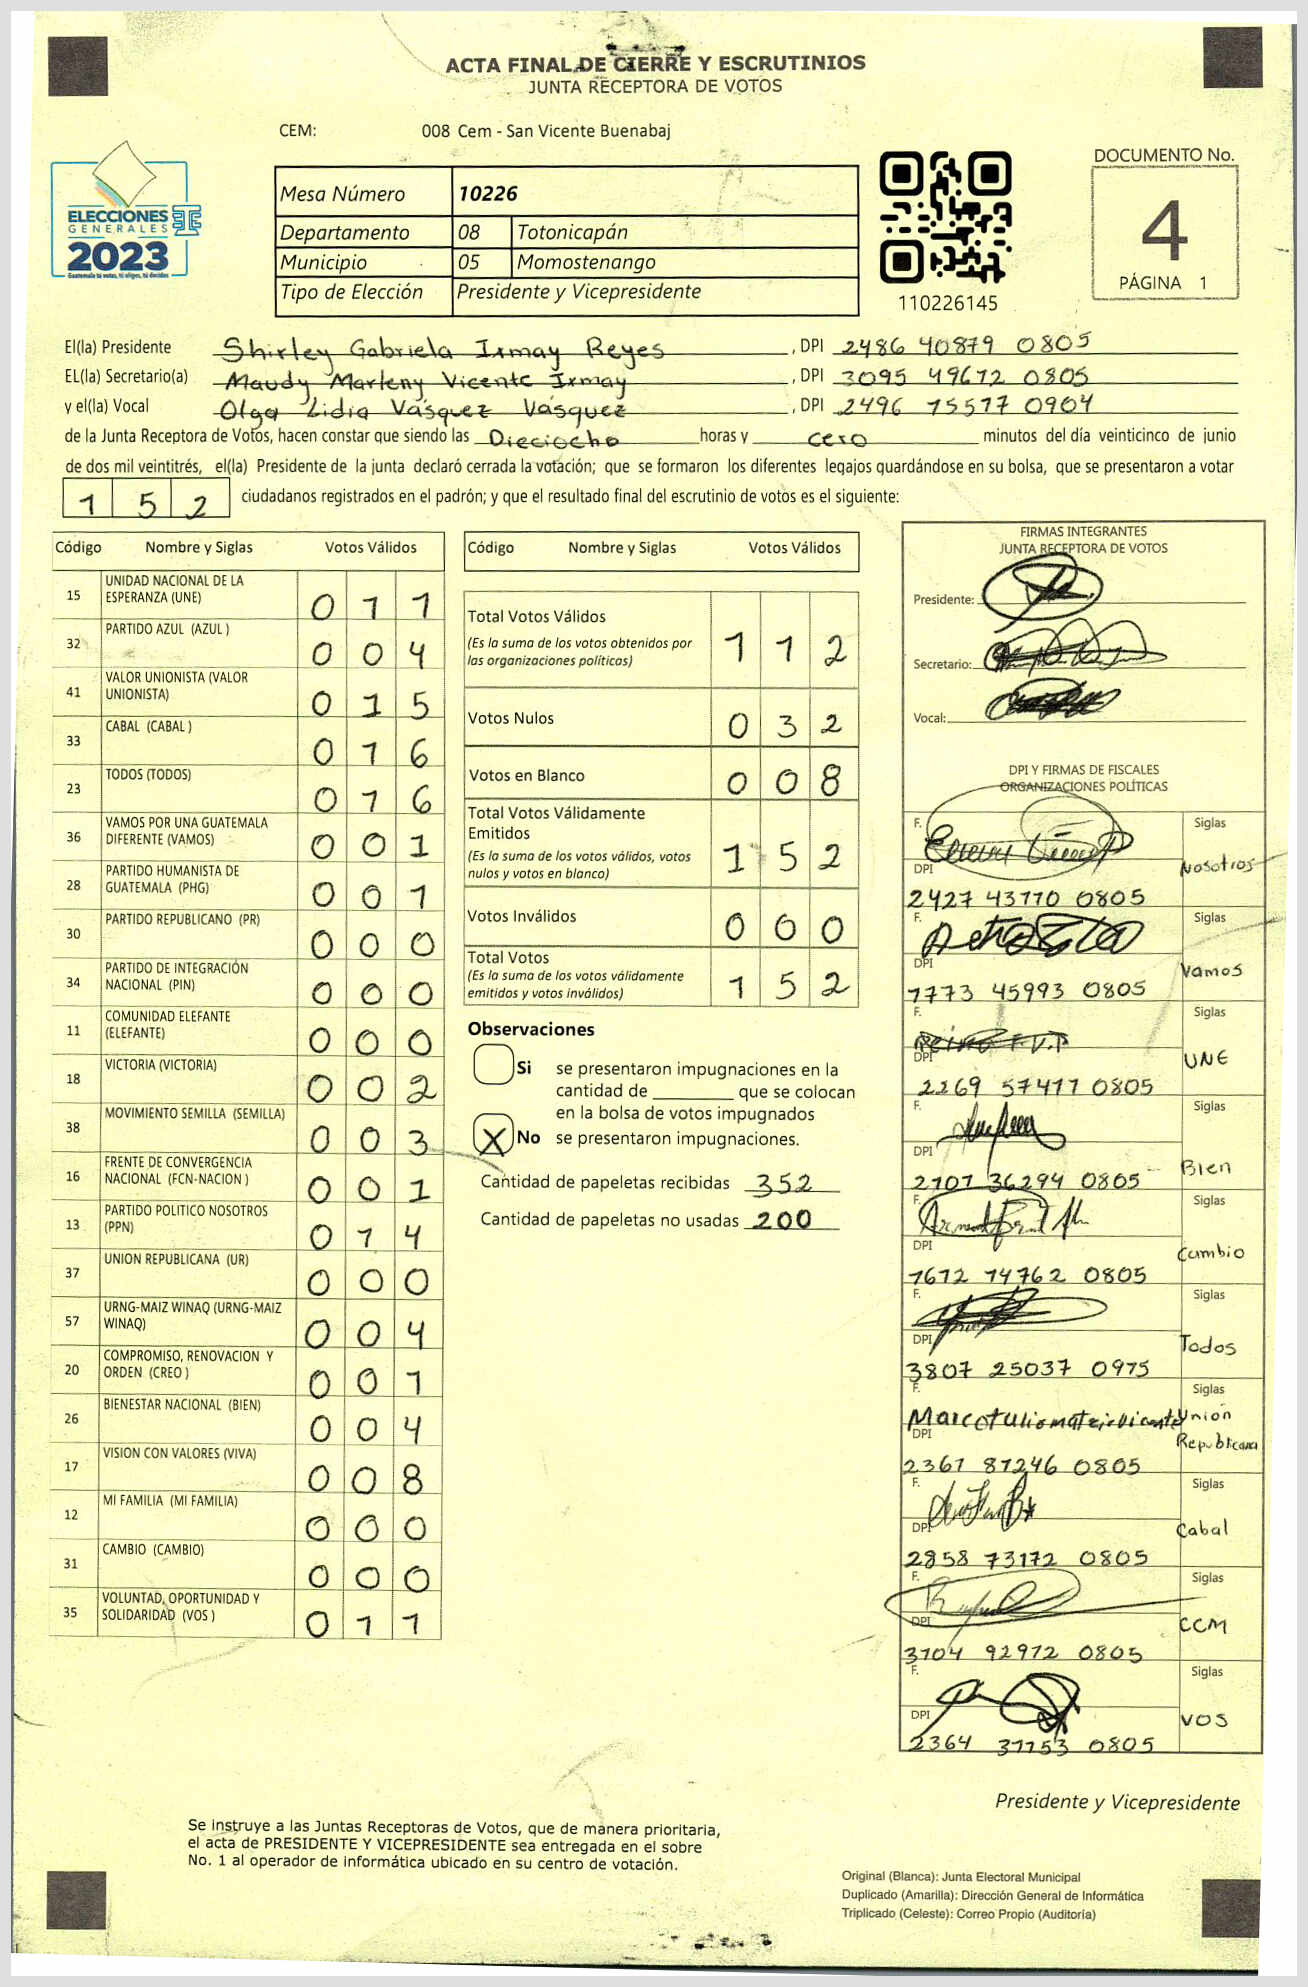 ACTA FINAL DE CIERRE Y ESCRUTINIOS
JUNTA RECEPTORA DE VOTOS
CEM: 008 Cem - San Vicente Buenabaj
ELECCIONES
GENERALES
2023
Guatemala tú votas, tú eliges, tú decides
Mesa Número 10226
Departamento 08 Totonicapán
Municipio 05 Momostenango
Tipo de Elección Presidente y Vicepresidente
110226145
DOCUMENTO No.
4
PÁGINA 1
El(la) Presidente Shirley Gabriela Ixmay Reyes , DPI 2486 40879 0805
EL(la) Secretario(a) Maudy Marleny Vicente Ixmay , DPI 3095 49672 0805
y el(la) Vocal Olga Lidia Vásquez Vásquez , DPI 2496 75577 0904
de la Junta Receptora de Votos, hacen constar que siendo las Dieciocho horas y cero minutos del día veinticinco de junio
de dos mil veintitrés, el(la) Presidente de la junta declaró cerrada la votación; que se formaron los diferentes legajos guardándose en su bolsa, que se presentaron a votar
152 ciudadanos registrados en el padrón; y que el resultado final del escrutinio de votos es el siguiente:
Código Nombre y Siglas Votos Válidos
15 UNIDAD NACIONAL DE LA ESPERANZA (UNE) 011
32 PARTIDO AZUL (AZUL ) 004
41 VALOR UNIONISTA (VALOR UNIONISTA) 015
33 CABAL (CABAL ) 016
23 TODOS (TODOS) 016
36 VAMOS POR UNA GUATEMALA DIFERENTE (VAMOS) 001
28 PARTIDO HUMANISTA DE GUATEMALA (PHG) 001
30 PARTIDO REPUBLICANO (PR) 000
34 PARTIDO DE INTEGRACIÓN NACIONAL (PIN) 000
11 COMUNIDAD ELEFANTE (ELEFANTE) 000
18 VICTORIA (VICTORIA) 002
38 MOVIMIENTO SEMILLA (SEMILLA) 003
16 FRENTE DE CONVERGENCIA NACIONAL (FCN-NACION ) 001
13 PARTIDO POLITICO NOSOTROS (PPN) 014
37 UNION REPUBLICANA (UR) 000
57 URNG-MAIZ WINAQ (URNG-MAIZ WINAQ) 004
20 COMPROMISO, RENOVACION Y ORDEN (CREO ) 001
26 BIENESTAR NACIONAL (BIEN) 004
17 VISION CON VALORES (VIVA) 008
12 MI FAMILIA (MI FAMILIA) 000
31 CAMBIO (CAMBIO) 000
35 VOLUNTAD, OPORTUNIDAD Y SOLIDARIDAD (VOS ) 011
Código Nombre y Siglas Votos Válidos
Total Votos Válidos 112
(Es la suma de los votos obtenidos por
las organizaciones políticas)
Votos Nulos 032
Votos en Blanco 008
Total Votos Válidamente
Emitidos 152
(Es la suma de los votos válidos, votos
nulos y votos en blanco)
Votos Inválidos 000
Total Votos 152
(Es la suma de los votos válidamente
emitidos y votos inválidos)
Observaciones
Si se presentaron impugnaciones en la
cantidad de ________ que se colocan
en la bolsa de votos impugnados
X No se presentaron impugnaciones.
Cantidad de papeletas recibidas 352
Cantidad de papeletas no usadas 200
FIRMAS INTEGRANTES
JUNTA RECEPTORA DE VOTOS
Presidente:
Secretario:
Vocal:
DPI Y FIRMAS DE FISCALES
ORGANIZACIONES POLÍTICAS
F. Siglas
DPI Nosotros
2427 43770 0805
F. Siglas
DPI Vamos
7773 45993 0805
F. Siglas
DPI UNE
2269 57417 0805
F. Siglas
DPI Bien
2707 36294 0805
F. Siglas
DPI Cambio
7672 74762 0805
F. Siglas
DPI Todos
3807 25037 0975
F. Siglas
DPI Unión Republicana
2367 87246 0805
F. Siglas
DPI Cabal
2858 73172 0805
F. Siglas
DPI CCM
3704 92972 0805
F. Siglas
DPI VOS
2364 37753 0805
Presidente y Vicepresidente
Se instruye a las Juntas Receptoras de Votos, que de manera prioritaria,
el acta de PRESIDENTE Y VICEPRESIDENTE sea entregada en el sobre
No. 1 al operador de informática ubicado en su centro de votación.
Original (Blanca): Junta Electoral Municipal
Duplicado (Amarilla): Dirección General de Informática
Triplicado (Celeste): Correo Propio (Auditoría)